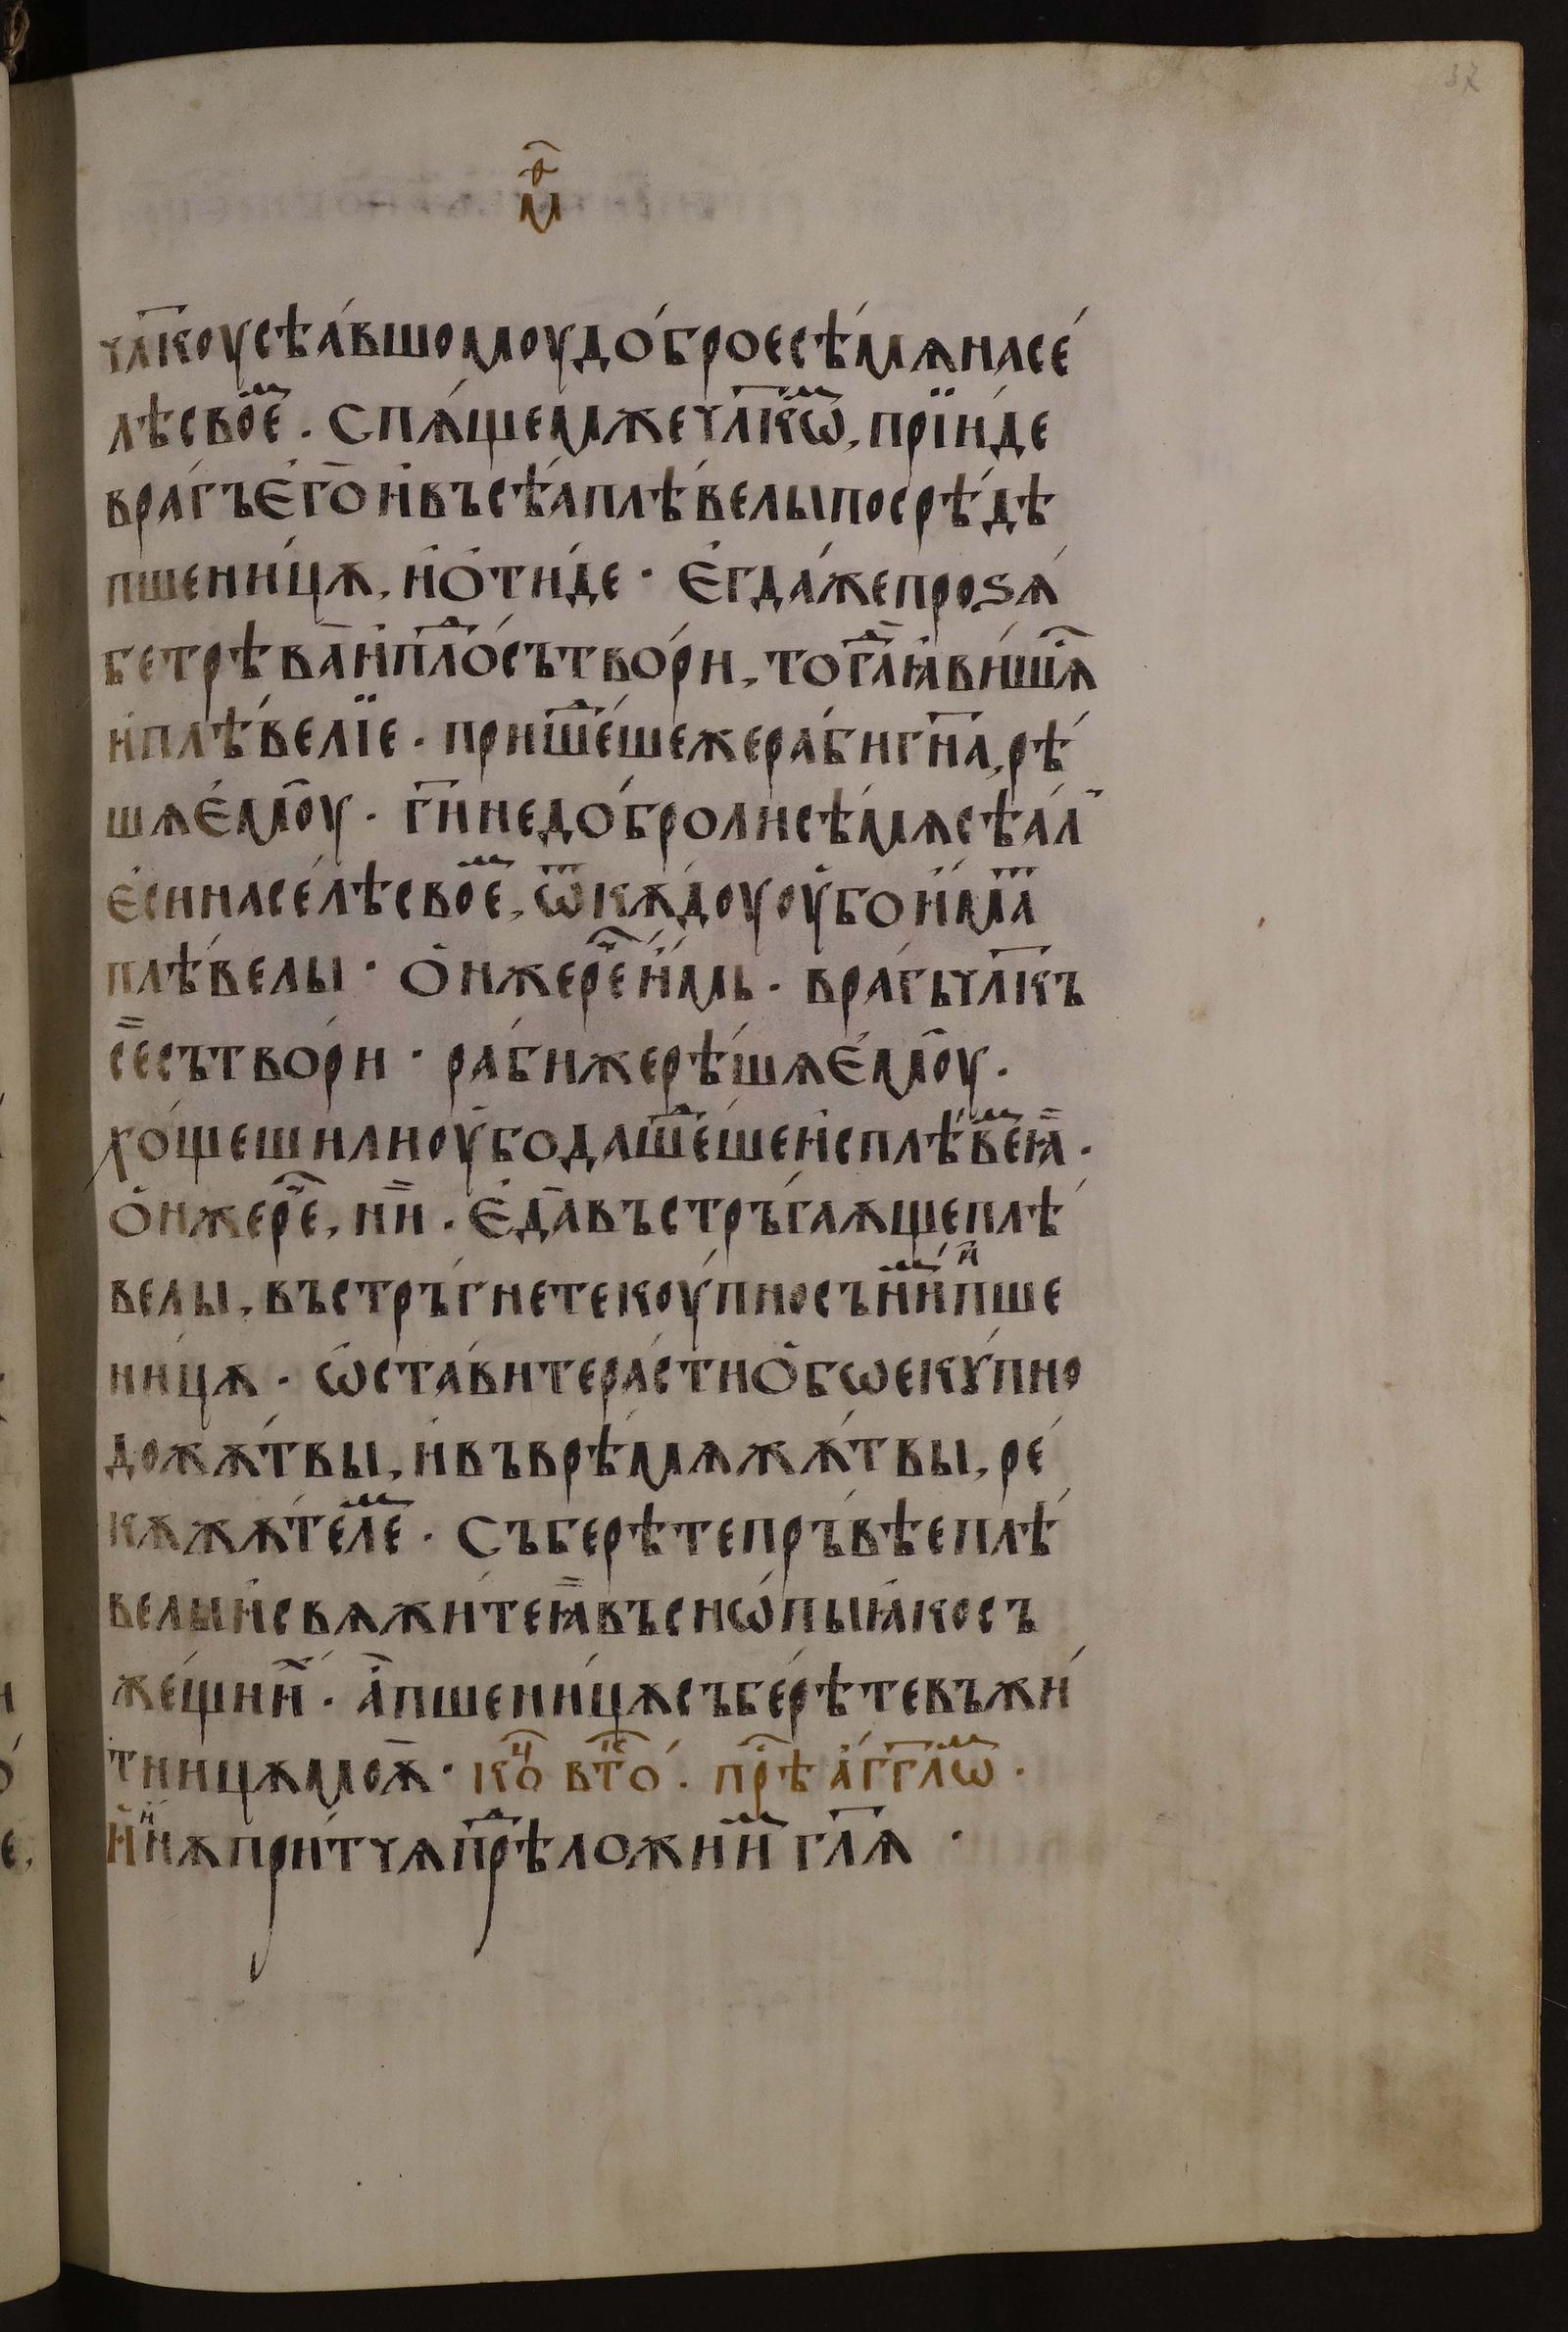 37
м҃ѳ
члк҃оусѣа́вшомоудо́броесѣ́мѧнасе́
лѣсвоеⷨ҇. Спѧ́щемжечлк҃ѡⷨ, прїи́де
вра́гъєго̀ и҆въсѣ́аплѣ́велыпосрѣ́дѣ
пшени́цѫ, и҆ѻти́де · Є҆гда́жепроѕѧ́
бетрѣва̀и҆плоⷣсътво́ри, тогⷣаꙗ҆ви́шѧсⷧ҇
и҆плѣ́велїе · прише́ⷣшежераби́гн҃а, рѣ́
шѧє҆мо̀у · гн҃недо́бролисѣ́мѧсѣ́ал
є҆синаселѣсвоеⷨ, ѿкѫ́доуоу҆боимат̾
плѣ́велы · Ѻ҆нжереⷱ҇и҆́мь · вра́гьчлк҃ъ
се̏сътво́ри · раби́жерѣ́шѧє҆мо̀у ·
хо́щешилиоу҆бодаше́ⷣшеи҆сплѣ́веⷨꙗ̏ ·
Ѻ҆нжереⷱ҇, ни̏ · Є҆да̀въстръ́гаѫщеплѣ́
велы, въстръ́гнетекоу́пносъни́ⷨи҆пше
ни́цѫ · ѡ҆ста́витера́стиѻ҆бѡекꙋ́пно
дожѧ́твы, и҆въврѣ́мѧжѧ́твы, ре
кѫжѧ́телеⷨ · Съберѣ́тепръ́вѣеплѣ́
велыи҆свѧжи́теꙗ̏въснѡ́пыꙗ҆косъ
же́щиⷯи · а҆̀пшени́цѫсъбе́рѣтевъжи́
тницѫмоѫ̀ · коⷰ҇ втоⷬ҇ · прⷣѣ а҆́гг҃лѡⷨ ·
И҆нѫпри́тчѫпрⷣѣложииⷨ гл҃ѧ ·